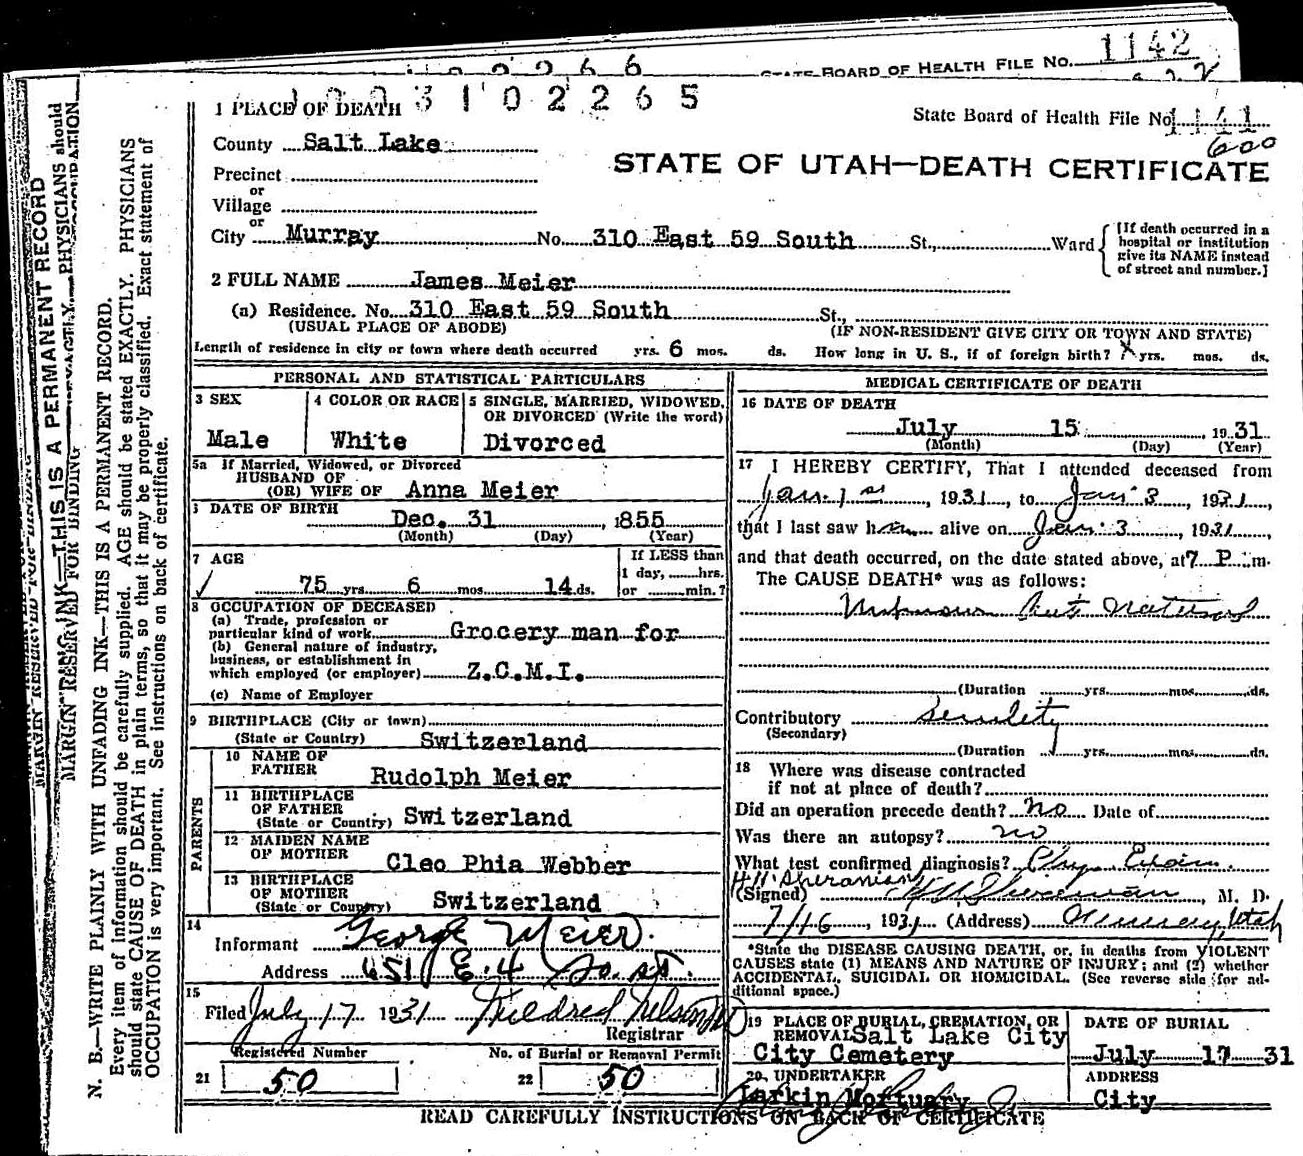 1142
STATE BOARD OF HEALTH FILE NO.
3102265
1 PLACE OF DEATH
State Board of Health File No. 1141
600
County Salt Lake
STATE OF UTAH—DEATH CERTIFICATE
Precinct
or
Village
or
City Murray No. 310 East 59 South St., Ward
[If death occurred in a hospital or institution give its NAME instead of street and number.]
2 FULL NAME James Meier
(a) Residence. No. 310 East 59 South St.,
(USUAL PLACE OF ABODE) (IF NON-RESIDENT GIVE CITY OR TOWN AND STATE)
Length of residence in city or town where death occurred yrs. 6 mos. ds. How long in U. S., if of foreign birth? yrs. mos. ds.
PERSONAL AND STATISTICAL PARTICULARS
3 SEX
Male
4 COLOR OR RACE
White
5 SINGLE, MARRIED, WIDOWED, OR DIVORCED (Write the word)
Divorced
5a If Married, Widowed, or Divorced
HUSBAND OF
(OR) WIFE OF Anna Meier
DATE OF BIRTH
Dec. 31, 1855
(Month) (Day) (Year)
7 AGE
75 yrs. 6 mos. 14 ds.
If LESS than
1 day, hrs.
or min.?
8 OCCUPATION OF DECEASED
(a) Trade, profession or
particular kind of work Grocery man for
(b) General nature of industry,
business, or establishment in
which employed (or employer) Z.C.M.I.
(c) Name of Employer
9 BIRTHPLACE (City or town)
(State or Country) Switzerland
PARENTS
10 NAME OF
FATHER Rudolph Meier
11 BIRTHPLACE
OF FATHER
(State or Country) Switzerland
12 MAIDEN NAME
OF MOTHER Cleo Phia Webber
13 BIRTHPLACE
OF MOTHER
(State or Country) Switzerland
14
Informant George Meier.
Address 651 E. 4 So. St.
15
Filed July 17 1931 Mildred Nelson
Registrar
Registered Number
21 50
No. of Burial or Removal Permit
22 50
MEDICAL CERTIFICATE OF DEATH
16 DATE OF DEATH
July 15, 1931
(Month) (Day) (Year)
17 I HEREBY CERTIFY, That I attended deceased from
Jan. 1st, 1931, to Jan. 3, 1931,
that I last saw h alive on Jan. 3, 1931,
and that death occurred, on the date stated above, at 7 P. m.
The CAUSE DEATH* was as follows:
Unknown but natural
(Duration yrs. mos. ds.
Contributory Senility
(Secondary)
(Duration yrs. mos. ds.
18 Where was disease contracted
if not at place of death?
Did an operation precede death? No Date of
Was there an autopsy? no
What test confirmed diagnosis? Phy. Exam.
H H Sheranian
(Signed) M. D.
7/16 1931 (Address) Murray, Utah
*State the DISEASE CAUSING DEATH, or, in deaths from VIOLENT
CAUSES state (1) MEANS AND NATURE OF INJURY; and (2) whether
ACCIDENTAL, SUICIDAL OR HOMICIDAL. (See reverse side for ad-
ditional space.)
19 PLACE OF BURIAL, CREMATION, OR
REMOVAL Salt Lake City
City Cemetery
DATE OF BURIAL
July 17 31
20 UNDERTAKER
Larkin Mortuary
ADDRESS
City
READ CAREFULLY INSTRUCTIONS ON BACK OF CERTIFICATE
MARGIN RESERVED FOR BINDING
N. B.—WRITE PLAINLY WITH UNFADING INK—THIS IS A PERMANENT RECORD.
Every item of information should be carefully supplied. AGE should be stated EXACTLY. PHYSICIANS
should state CAUSE OF DEATH in plain terms, so that it may be properly classified. Exact statement of
OCCUPATION is very important. See instructions on back of certificate.